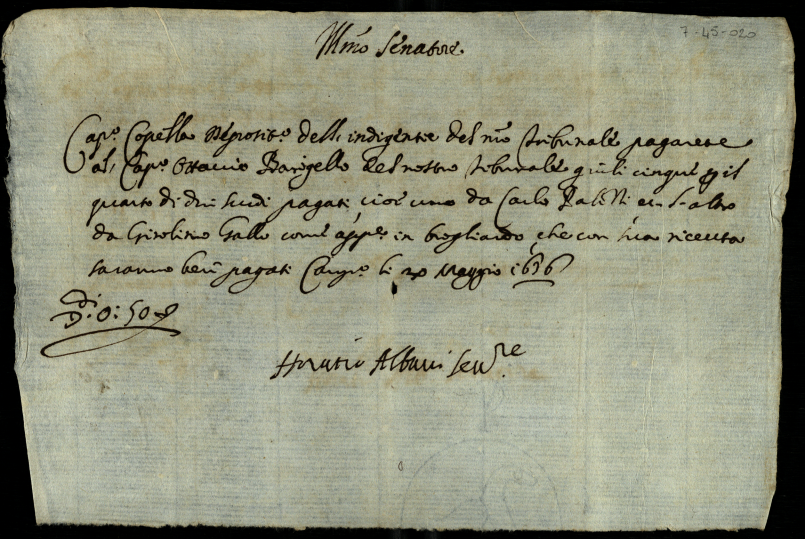 7-45-020
Ill.mo Senatore
Cap.o Copella Deposit.o dell indigentie del n.ro tribunale pagarete
al Cap.o Ottavio Barigello del nostro tribunale giuli cinque p il
quarto di dui scudi pagati cioè uno da Carlo et l'altro
da Girolimo Gallo come app.e in brogliardo, che con sua ricevuta
saranno ben pagati Camp.o li 20 Maggio 1636
D. 0: 50
Horatio Albani Sen.re